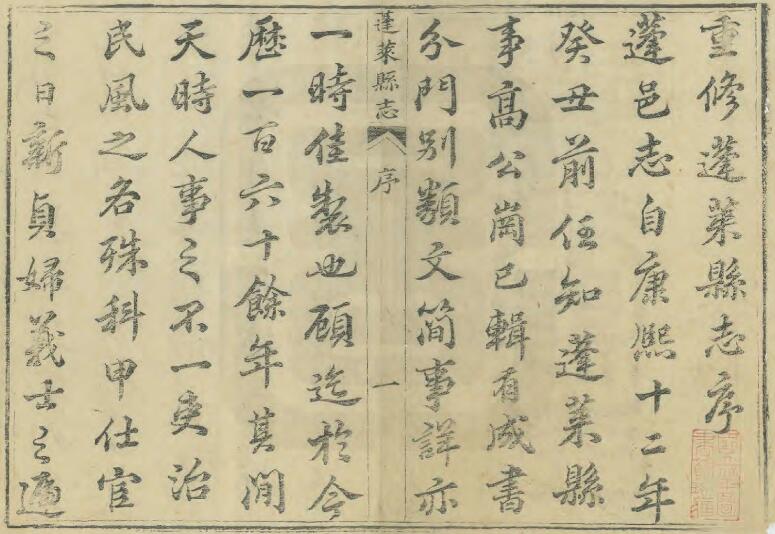 重修蓬萊縣志序
蓬邑志自康熙十二年
癸丑前任知蓬萊縣
事高公崗已輯有成書
分門別類文簡事詳亦
蓬萊縣志 序 一
一時佳製也顧迄於今
歷一百六十餘年其間
天時人事之不一吏治
民風之各殊科甲仕宦
之日新貞婦義士之